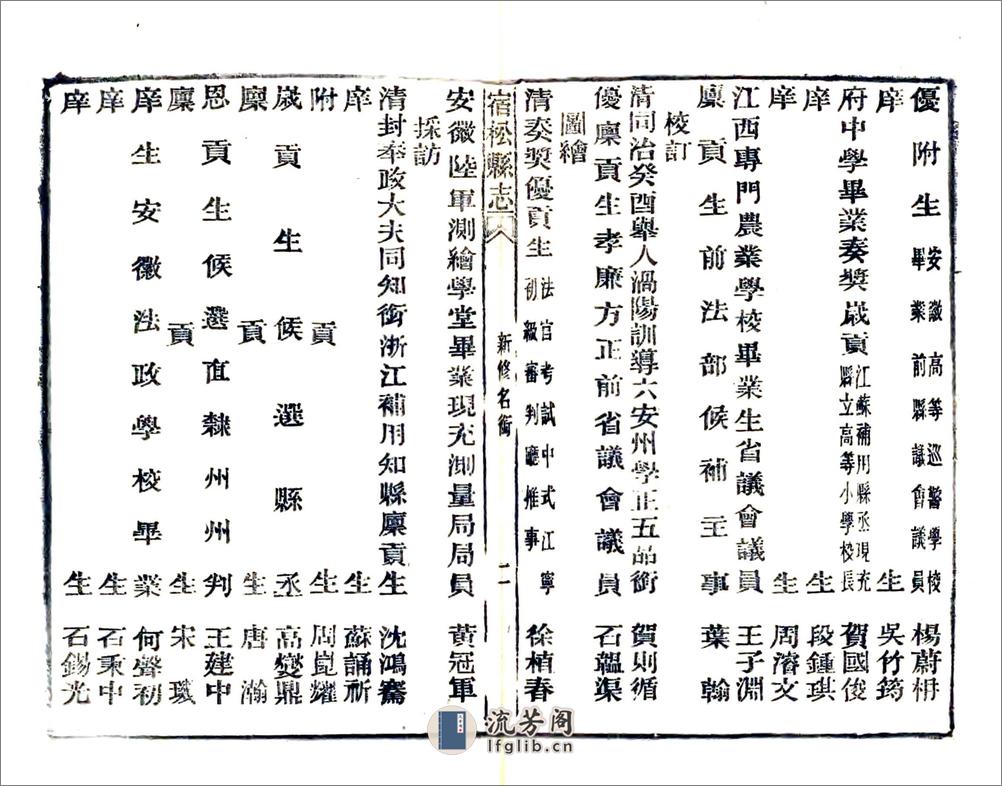 優附生安徽高等巡警學校畢業前縣議會議員楊蔚枬
庠生吳竹筠
府中學畢業奏奬歲貢江蘇補用縣丞現充縣立高等小學校長賀國俊
庠生段鍾琪
庠生周濬文
江西專門農業學校畢業生省議會議員王子淵
廩貢生前法部候補主事葉翰
校訂
清同治癸酉舉人渦陽訓導六安州學正五品銜賀則循
優廩貢生孝廉方正前省議會議員石韞渠
圖繪
清奏奬優貢生法官考試中式江寧初級審判廳推事徐植春
宿松縣志
新修名銜
二
安徽陸軍測繪學堂畢業現充測量局局員黃冠軍
採訪
清封奉政大夫同知銜浙江補用知縣廩貢生沈鴻騫
庠生蘇誦祈
附貢生周崑耀
歲貢生候選縣丞高爕鼎
廩貢生唐瀚
恩貢生候選直隸州州判王建中
廩貢生宋瓊
庠生安徽法政學校畢業何聲初
庠生石秉中
庠生石錫光
流芳阁
lfglib.cn